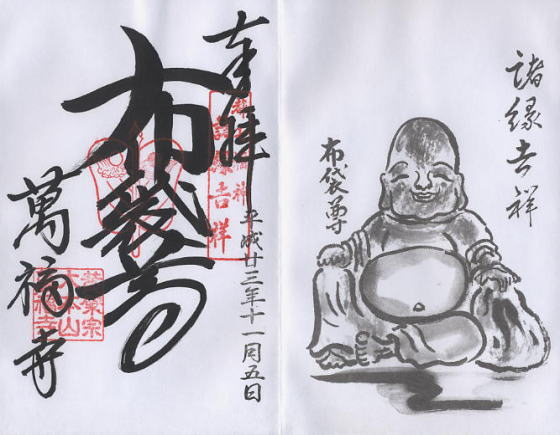 諸縁吉祥
布袋尊
奉拝
平成廿三年十一月五日
諸縁吉祥
布袋尊
萬福寺
黄檗宗
大本山
萬福寺